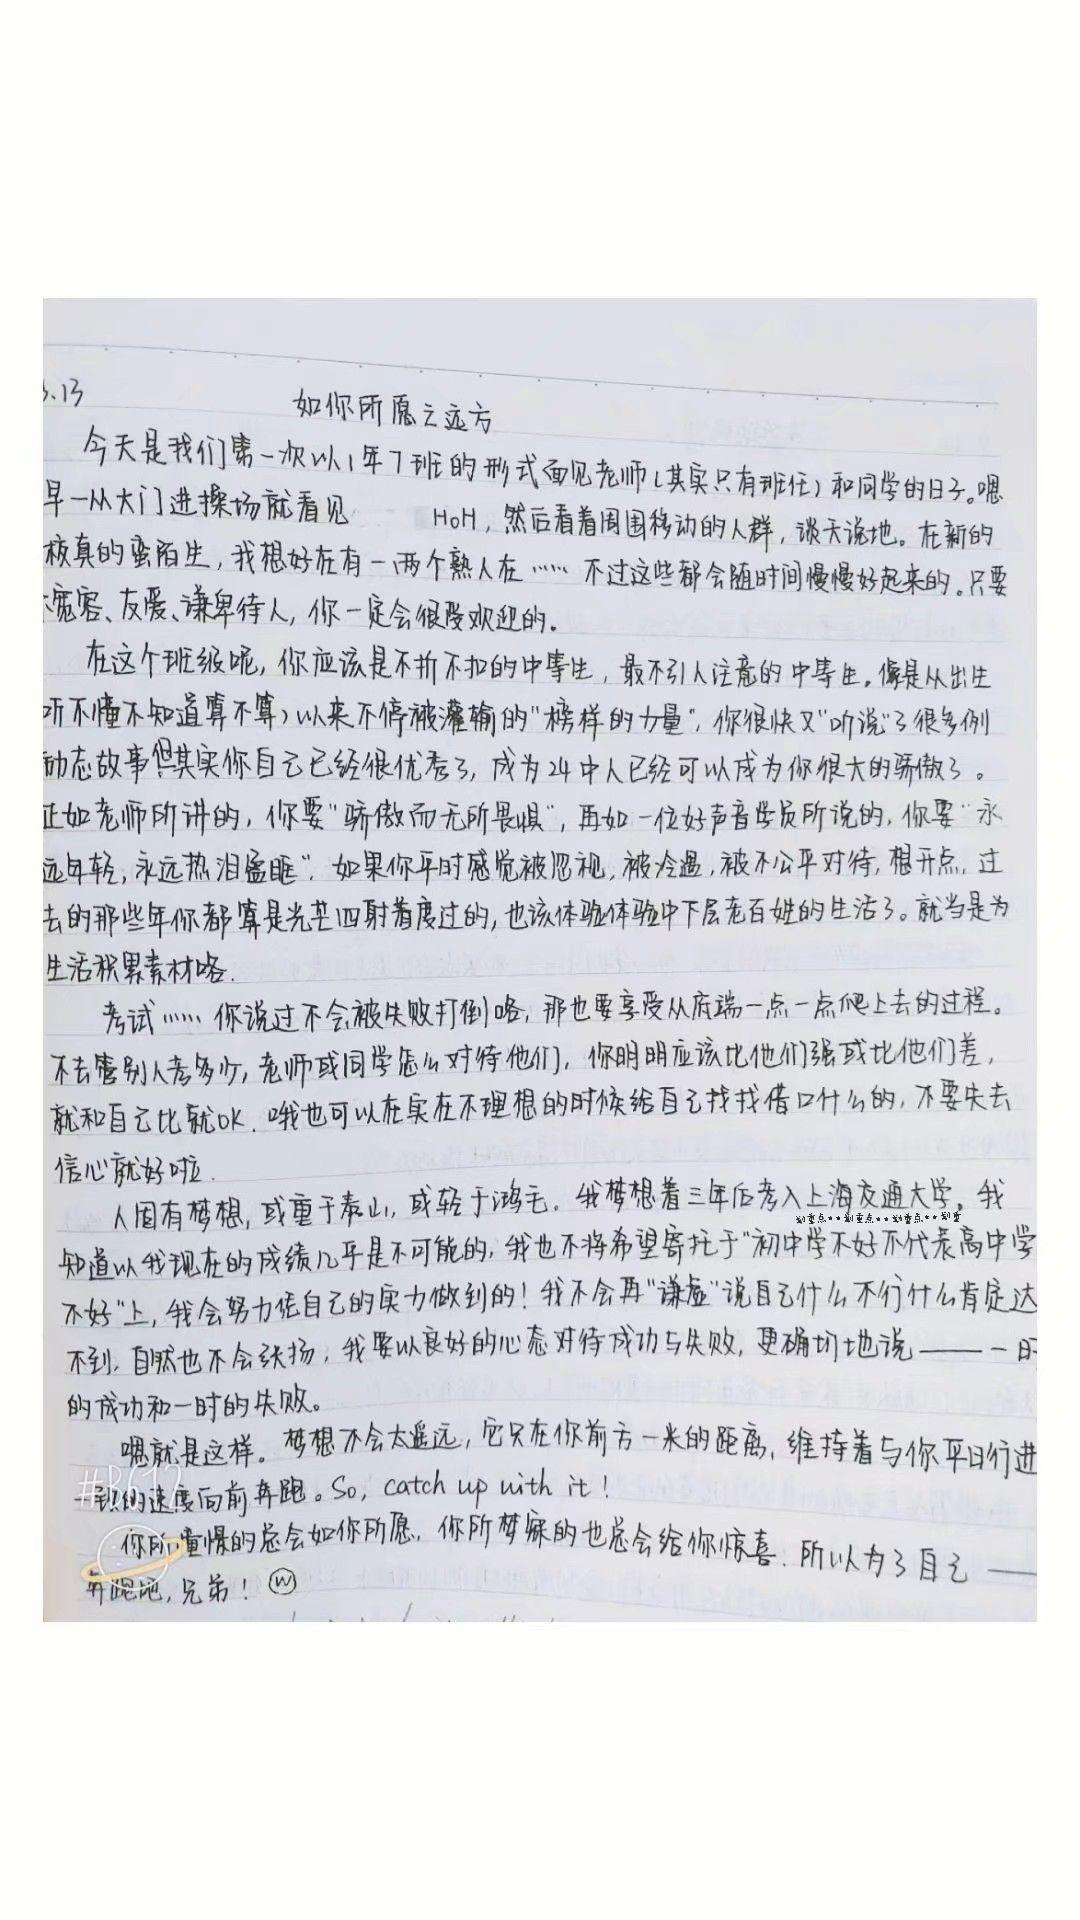 .13
如你所愿之远方
今天是我们第一次以1年7班的形式面见老师(其实只有班任)和同学的日子。嗯
早一从大门进操场就看见 HoH,然后看着周围移动的人群,谈天说地。在新的
校真的蛮陌生,我想好在有一两个熟人在…… 不过这些都会随时间慢慢好起来的。只要
宽容、友爱、谦卑待人,你一定会很受欢迎的。
在这个班级呢,你应该是不折不扣的中等生,最不引人注意的中等生。像是从出生
听不懂不知道算不算)以来不停被灌输的"榜样的力量",你很快又"听说"了很多例
励志故事但其实你自己已经很优秀了,成为24中人已经可以成为你很大的骄傲了。
正如老师所讲的,你要"骄傲而无所畏惧",再如一位好声音学员所说的,你要"永
远年轻,永远热泪盈眶"。如果你平时感觉被忽视,被冷遇,被不公平对待,想开点,过
去的那些年你都算是光芒四射着度过的,也该体验体验中下层老百姓的生活了。就当是为
生活积累素材咯.
考试…… 你说过不会被失败打倒咯,那也要享受从底端一点一点爬上去的过程。
不去管别人考多少,老师或同学怎么对待他们,你明明应该比他们强或比他们差,
就和自己比就OK.哦也可以在实在不理想的时候给自己找找借口什么的,不要失去
信心就好啦.
人固有梦想,或重于泰山,或轻于鸿毛。我梦想着三年后考入上海交通大学,我
划重点**划重点**划重点**划重
知道以我现在的成绩几乎是不可能的,我也不将希望寄托于"初中学不好不代表高中学
不好"上,我会努力凭自己的实力做到的!我不会再"谦虚"说自己什么不行什么肯定达
不到,自然也不会张扬,我要以良好的心态对待成功与失败,更确切地说——一时
的成功和一时的失败。
嗯就是这样。梦想不会太遥远,它只在你前方一米的距离,维持着与你平日行进
#B612
的速度向前奔跑。So, catch up with it!
你所憧憬的总会如你所愿,你所梦寐的也总会给你惊喜.所以为了自己——
奔跑吧,兄弟! W